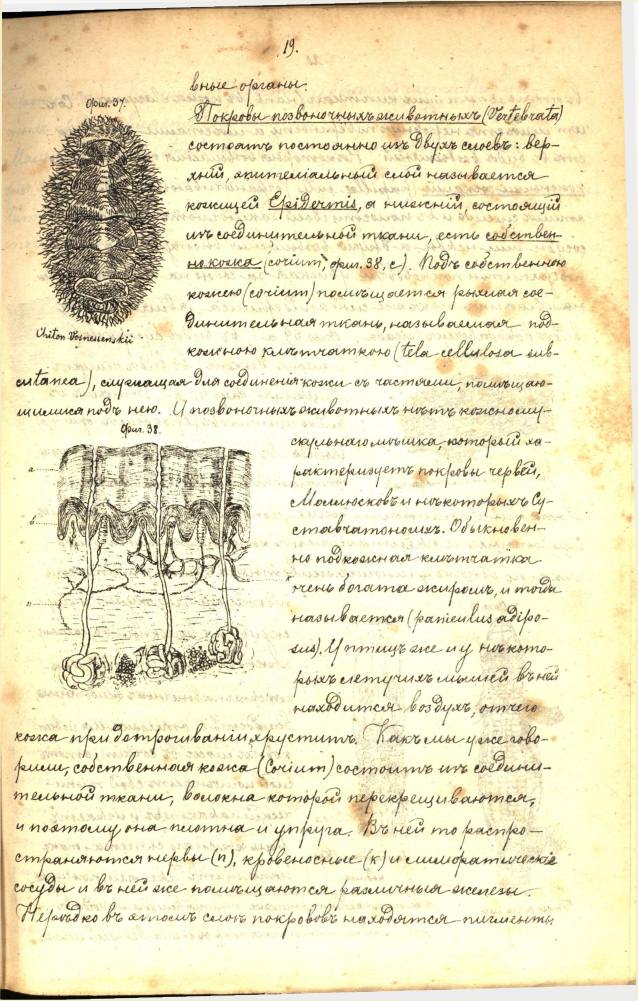 19.
вные органы.
Фиг. 37.
Покровы позвоночныхъ животныхъ (Vertebrata)
состоятъ постоянно изъ двухъ слоевъ: вер-
хній, эпителіальный слой называется
кожицей Epidermis, а нижній, состоящій
изъ соединительной ткани, есть собствен-
но кожа (corium, фиг. 38, с). Подъ собственною
кожею (corium) помѣщается рыхлая сое-
динительная ткань, называемая под-
Chiton Vosnesenskii
кожною клѣтчаткою (tela cellulosa sub-
cutanea), служащая для соединенія кожи съ частями, помѣщаю-
щимися подъ нею. У позвоночныхъ животныхъ нѣтъ кожному-
Фиг. 38.
скульнаго мѣшка, который ха-
рактеризуетъ покровы червей,
Моллюсковъ и нѣкоторыхъ Су-
ставчатоногихъ. Обыкновен-
но подкожная клѣтчатка
очень богата жиромъ, и тогда
называется (paniculus adipo-
sus). У птицъ же и у нѣкото-
рыхъ летучихъ мышей въ ней
находится воздухъ, отчего
a
b
n
кожа при дотрогиваніи хруститъ. Какъ мы уже гово-
рили, собственная кожа (Corium) состоитъ изъ соедини-
тельной ткани, волокна которой перекрещиваются,
и поэтому она плотна и упруга. Въ ней то распро-
страняются нервы (n), кровеносные (к) и лимфатическіе
сосуды и въ ней же помѣщаются различныя железы.
Нерѣдко въ этомъ слоѣ покрововъ находятся пигменты